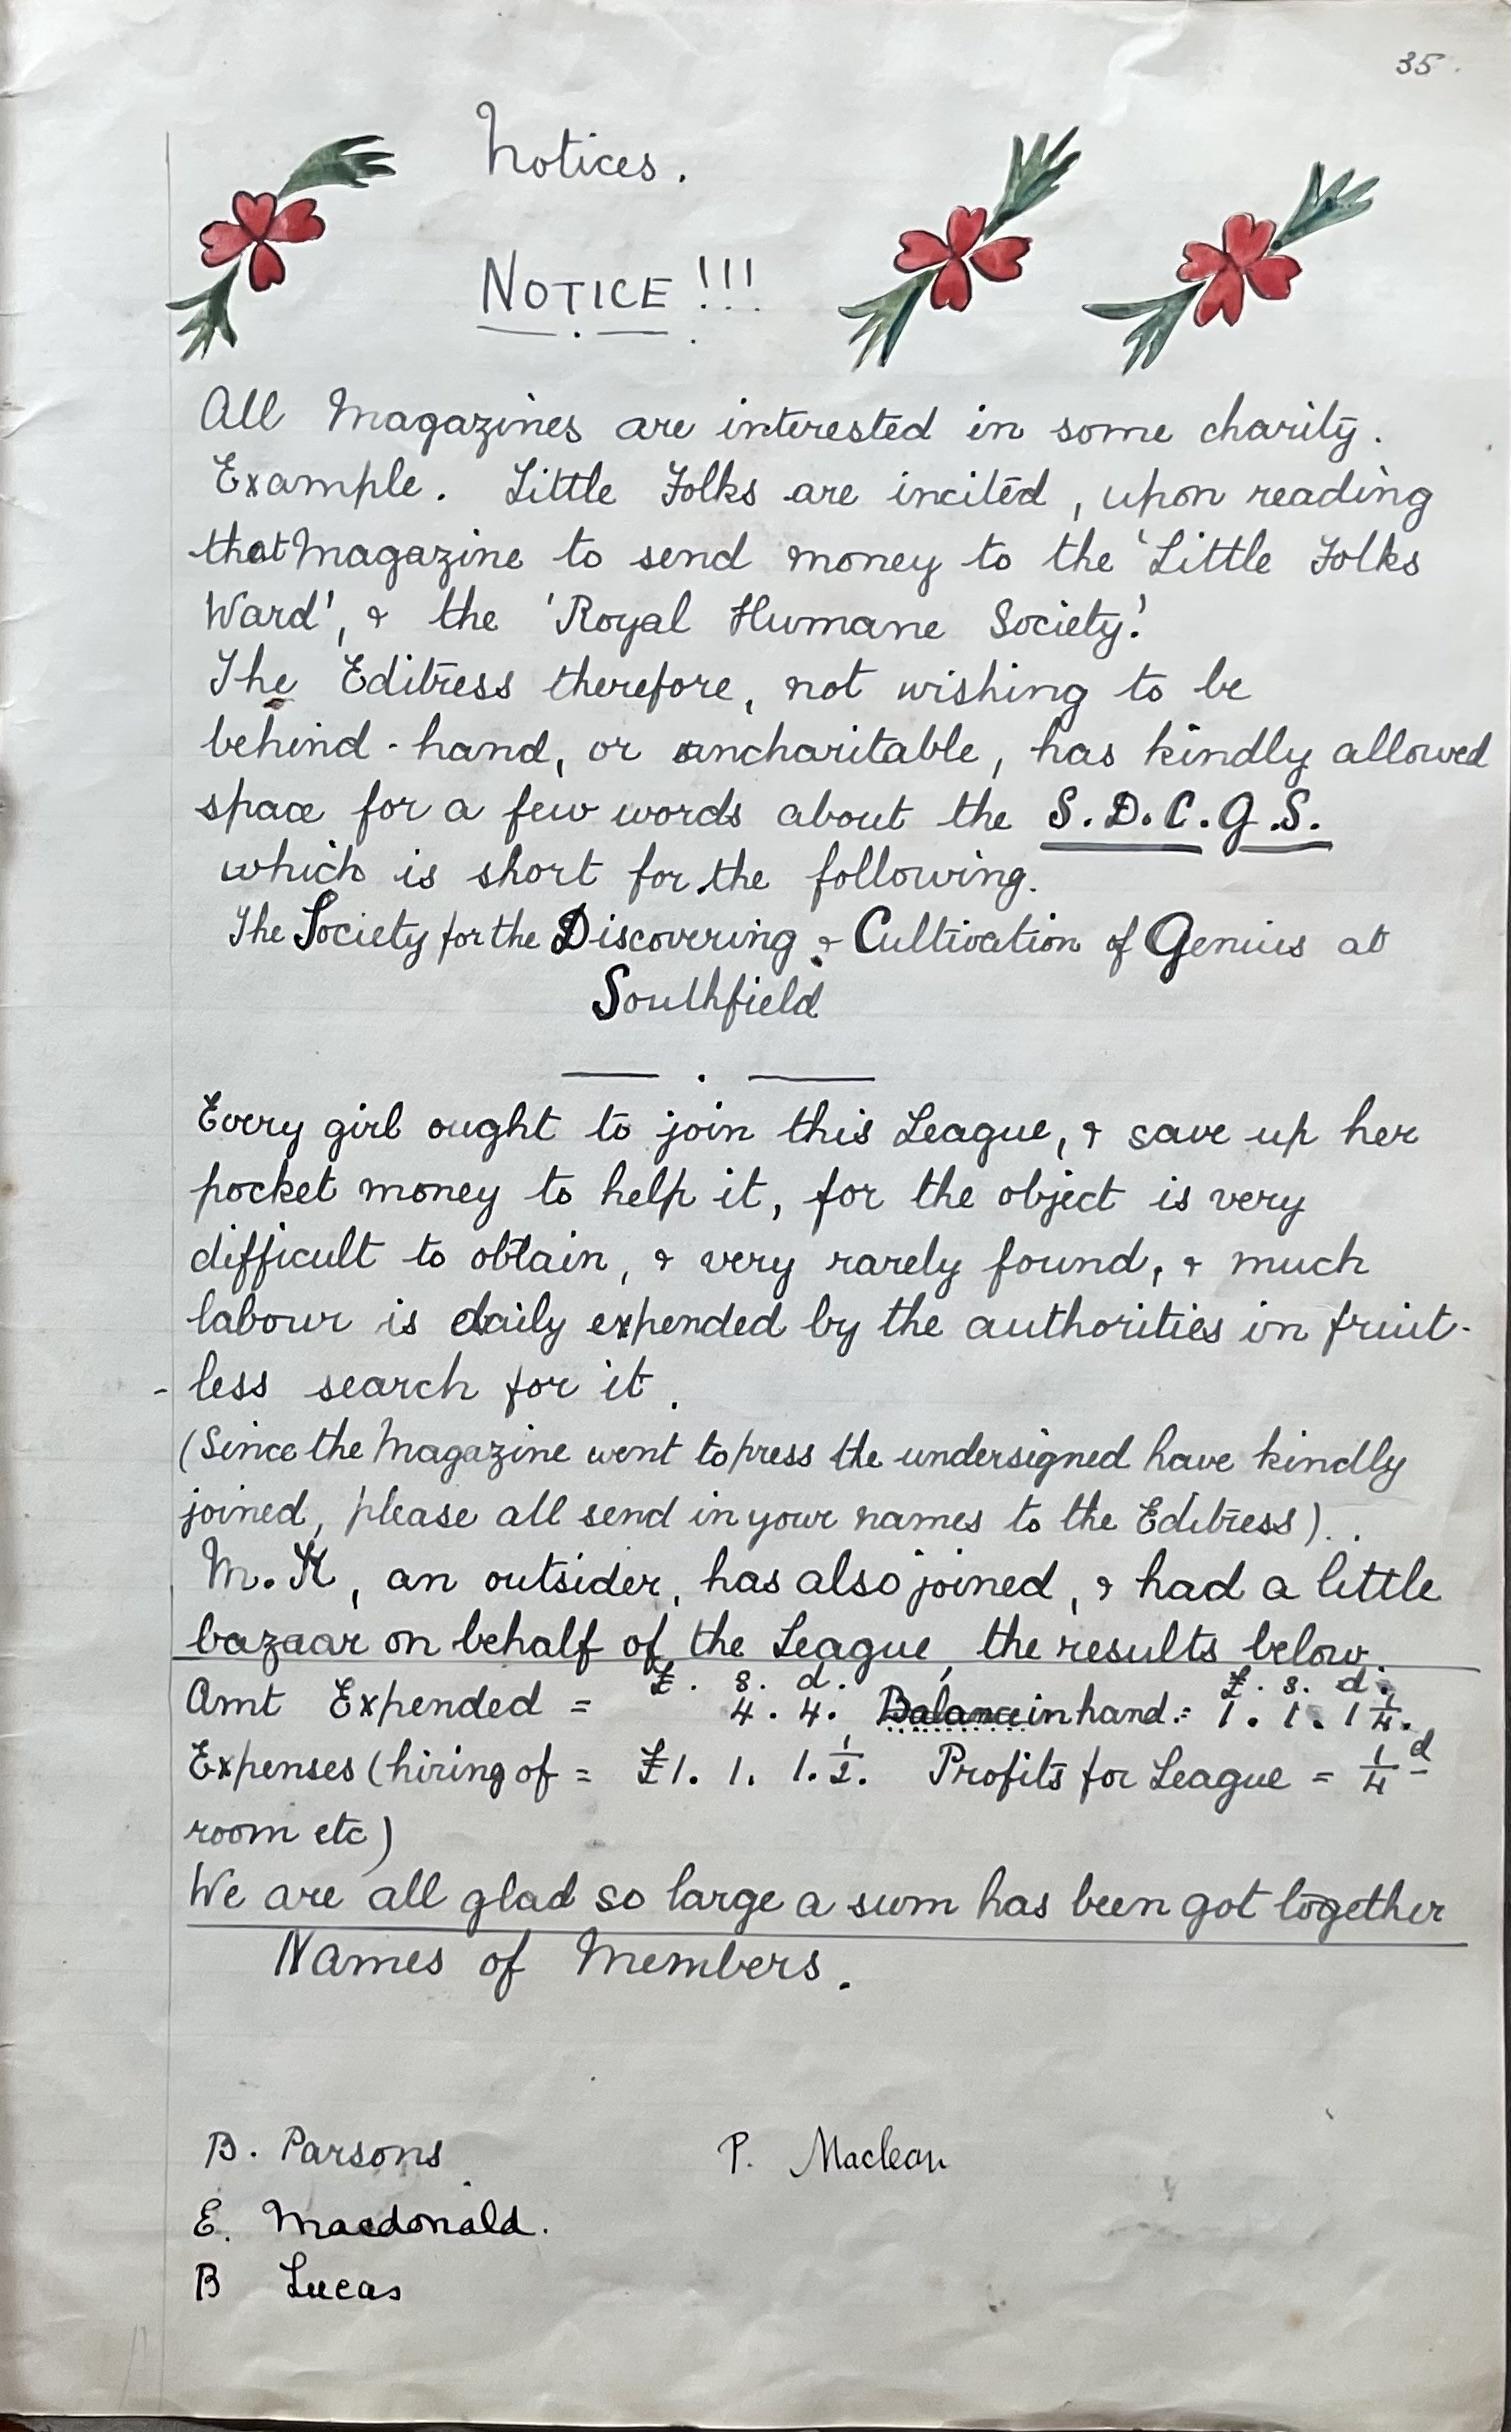 35.
Notices.
NOTICE !!!
All Magazines are interested in some charity.
Example. Little Folks are incited, upon reading
that Magazine to send money to the 'Little Folks
Ward', & the 'Royal Humane Society'.
The Editress therefore, not wishing to be
behind-hand, or uncharitable, has kindly allowed
space for a few words about the S.D.C.G.S.
which is short for the following.
The Society for the Discovering & Cultivation of Genius at
Southfield
Every girl ought to join this League, & save up her
pocket money to help it, for the object is very
difficult to obtain, & very rarely found, & much
labour is daily expended by the authorities in fruit-
-less search for it.
(Since the Magazine went to press the undersigned have kindly
joined, please all send in your names to the Editress)..
M.K, an outsider, has also joined, & had a little
bazaar on behalf of the League, the results below.
£. s. d. £. s. d.
Amt Expended = 4. 4. Balance in hand = 1. 1. 1 1/4.
Expenses (hiring of = £1. 1. 1. 1/2. Profits for League = 1/4 d
room etc)
We are all glad so large a sum has been got together
Names of Members.
B. Parsons P. Maclean
E. Macdonald.
B Lucas